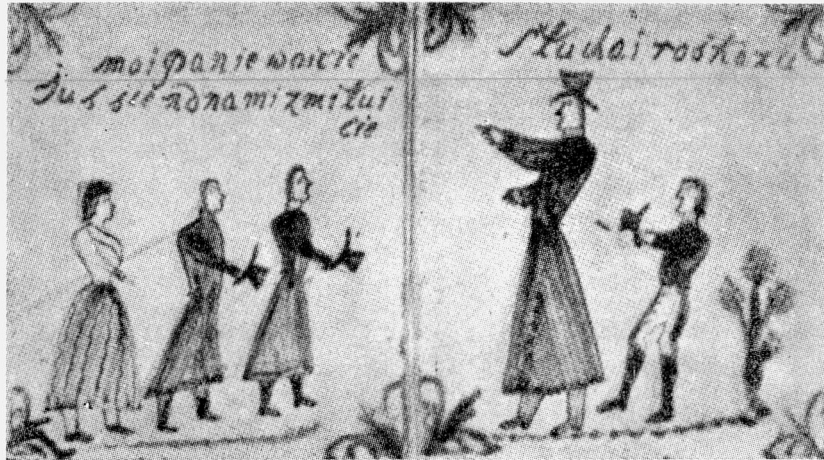 moi panie woicie
jus sie nad nami zmiłui
cie
słuchai roskazu